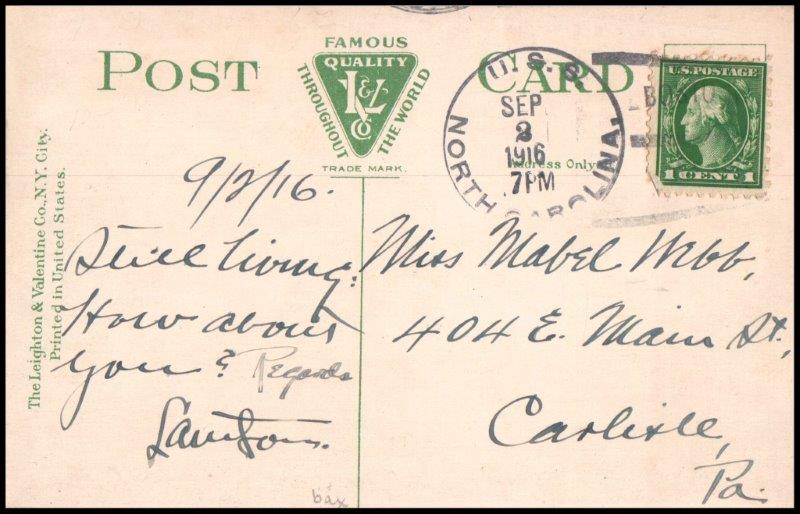 POST CARD
FAMOUS
QUALITY
L&V
Co
THROUGHOUT THE WORLD
TRADE MARK.
Address Only
U.S.S.
SEP
2
1916
7PM
NORTH CAROLINA.
U.S. POSTAGE
1 CENT 1
The Leighton & Valentine Co., N.Y. City.
Printed in United States.
9/2/16.
Still living.
How about
you?
Regards
Miss Mabel Webb,
404 E. Main St.,
Carlisle,
Pa.
bax